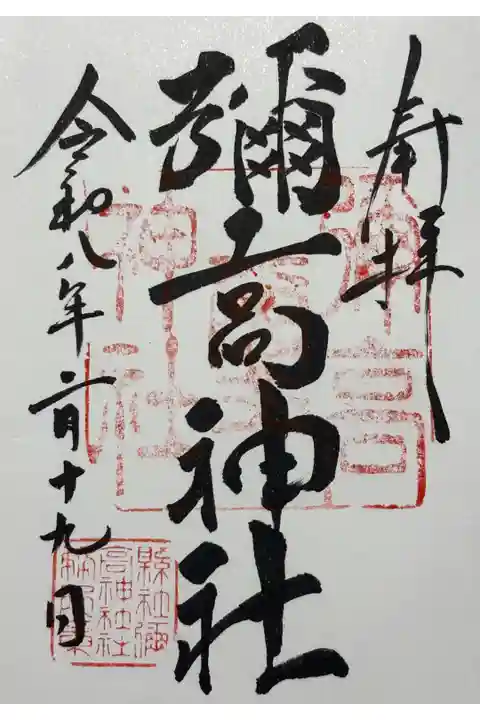 奉拝
彌高神社
令和八年二月十九日
彌高
神社
縣社彌
高神社社
務所章